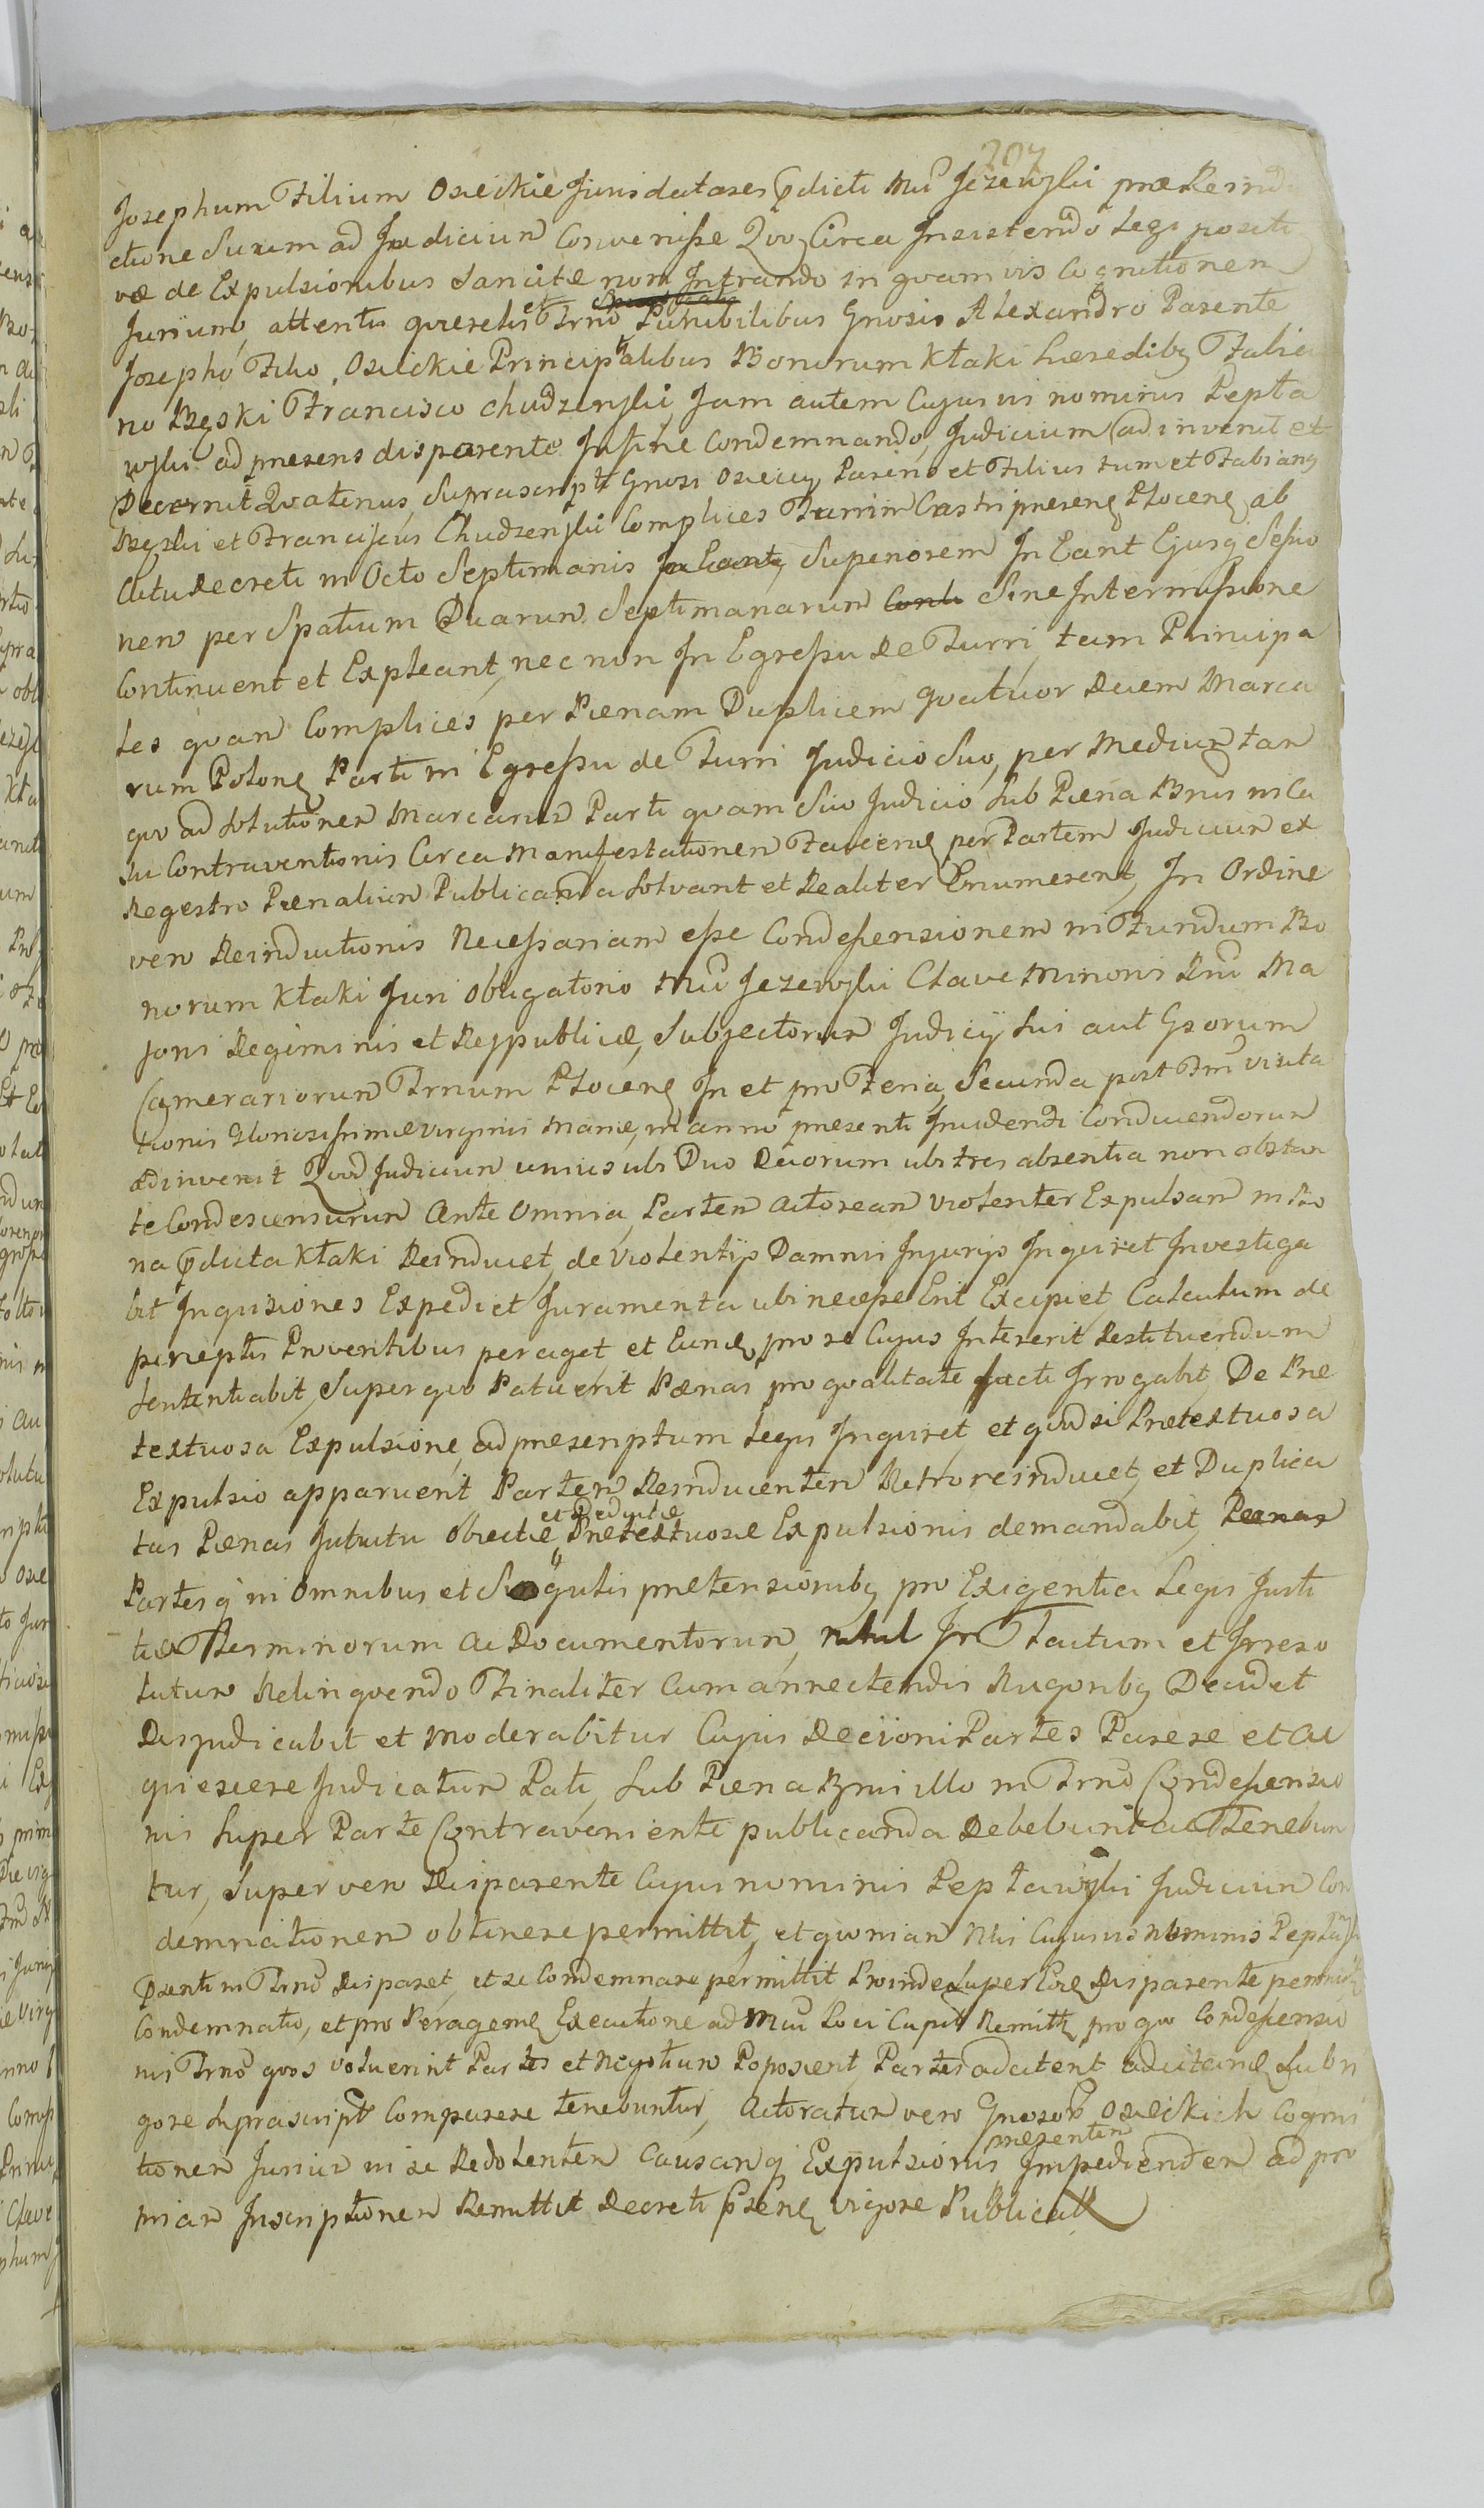 207
Josephum Filium Osieckie Jurisdatores pdicti Mci Jezewski præ Reindu
ctione Surum ad Judicium Convenisse Quo Circa Insistendo Legi positi
væ de Expulsionibus Sancitæ non Intrando in quamvis Cognitionem
Jurium, attentis quæselis et Trno Punibilibus Gnosis Alexandro Parente
Josepho Filio Osieckie Principalibus Bonorum Kłaki hæredibq Fabia
no Bęski Francisco Chudzenski Jam autem Cujusvis nominis Pepła
wski ad præsens disparente Insine Condemnando, Judicium adinvenit et
Decernit Quatenus Suprascript Gnosi Osieccy Parens et Filius tum et Fabianq
Bęski et Franciscus Chudzenski Complices Turrim Castri præsen Plocen ab
Actu Decreti in Octo Septimanis Superiorem In Eant Ejusq Sessio
nem per Spatium Duarum Septimanarum Sine Intermissione
Continuent et Expleant, nec non In Egressu de Turri, tam Principa
les quam Complices per Pænam Duplicem quatuor Decem Marca
rum Polon Parti in Egressu de Turri Judicio Suo, per Mediu tan
quo ad Solutionem Marcarum Parti quam Suo Judicio Sub Pæna Bnis in Ca
su Contraventionis Circa Manifestationem Faciend per Partem Judicium ex
Regestro Pænalium Publicanda Solvant et Realiter Enumerent, In Ordine
vero Reinductionis Necessariam esse Condescensionem in Fundum Bo
norum Kłaki Juri Obligatorio Mci Jezewski Clave Minoris Rni Ma
joris Regiminis et Reipublicæ, Subjectorum Judicij Sui aut Gsorum
Camerariorum Trnum Plocen In et pro Feria Secunda post Fm visita
tionis Gloriosissimæ Virginis Mariæ, in anno præsenti Incidenti Conducendorum
adinvenit Quod Judicium unius ubi Duo Duorum ubi tres absentia non obstan
te Condescensurum Ante Omnia Partem Actoream violenter Expulsam in Bo
na pdicta Kłaki Reinducet, de Violentijs Damnis Injurijs Inquiret Investiga
bit Inquisiones Expediet Juramenta ubi necesse Erit Excipiet, Calculum de
perceptis Proventibus peraget, et Eund pro re Cujus Intererit Restituendum
Sententiabit, Super quo Patuerit Pænas pro qualitate facti Irrogabit, De Præ
textuosa Expulsione, ad præscriptum Legis Inquiret, et quod si Prætextuosa
Expulsio apparuerit Partem Reinducentem Retroreinducet, et Duplica
tas Pænas Intuitu Obiectæ et Deductæ Prætextuosæ Expulsionis demandabit, Pænas
Partesq in Omnibus et Singulis prætensionibq pro Exigentia Legis Justi
tiæ Terminorum ac Documentorum, nihil In Tactum et Irreso
lutum Relinquendo Finaliter Cum annectendis Rugoribq Decidet
Disjudicabit et Moderabitur Cujus Decisioni Partes Parere et Ac
quiescere Judicatum Pati, Sub Pæna Bnni illo in Trno Condescensio
nis Super Parte Contraveniente publicanda Debebunt ac Tenebun
tur, Super vero Disparente Cujusnominis Peptawski Judicium Con
demnationem obtinere permittit, et quoniam Nlis Cujusvis nominis Pepław
Dsenti in Trno disparet, et se Condemnare permittit Proinde Super Eod Disparente permis
Condemnatio, et pro Peragend Executione ad Mcu Loci Capit Remitt, pro quo Condescensio
nis Trno quos voluerint Partes et Negotium Poposcerit, Partes adcitent adcitand Sub ri
gore Suprascript Comparere tenebuntur, Actoratum vero Gnosor Osieckich Cogni
tionem Jurium in se Redolentem Causamq Expulsionis præsentem Impedientem ad pro
miam Inscriptionem Remittit Decreti psen vigore Publicat